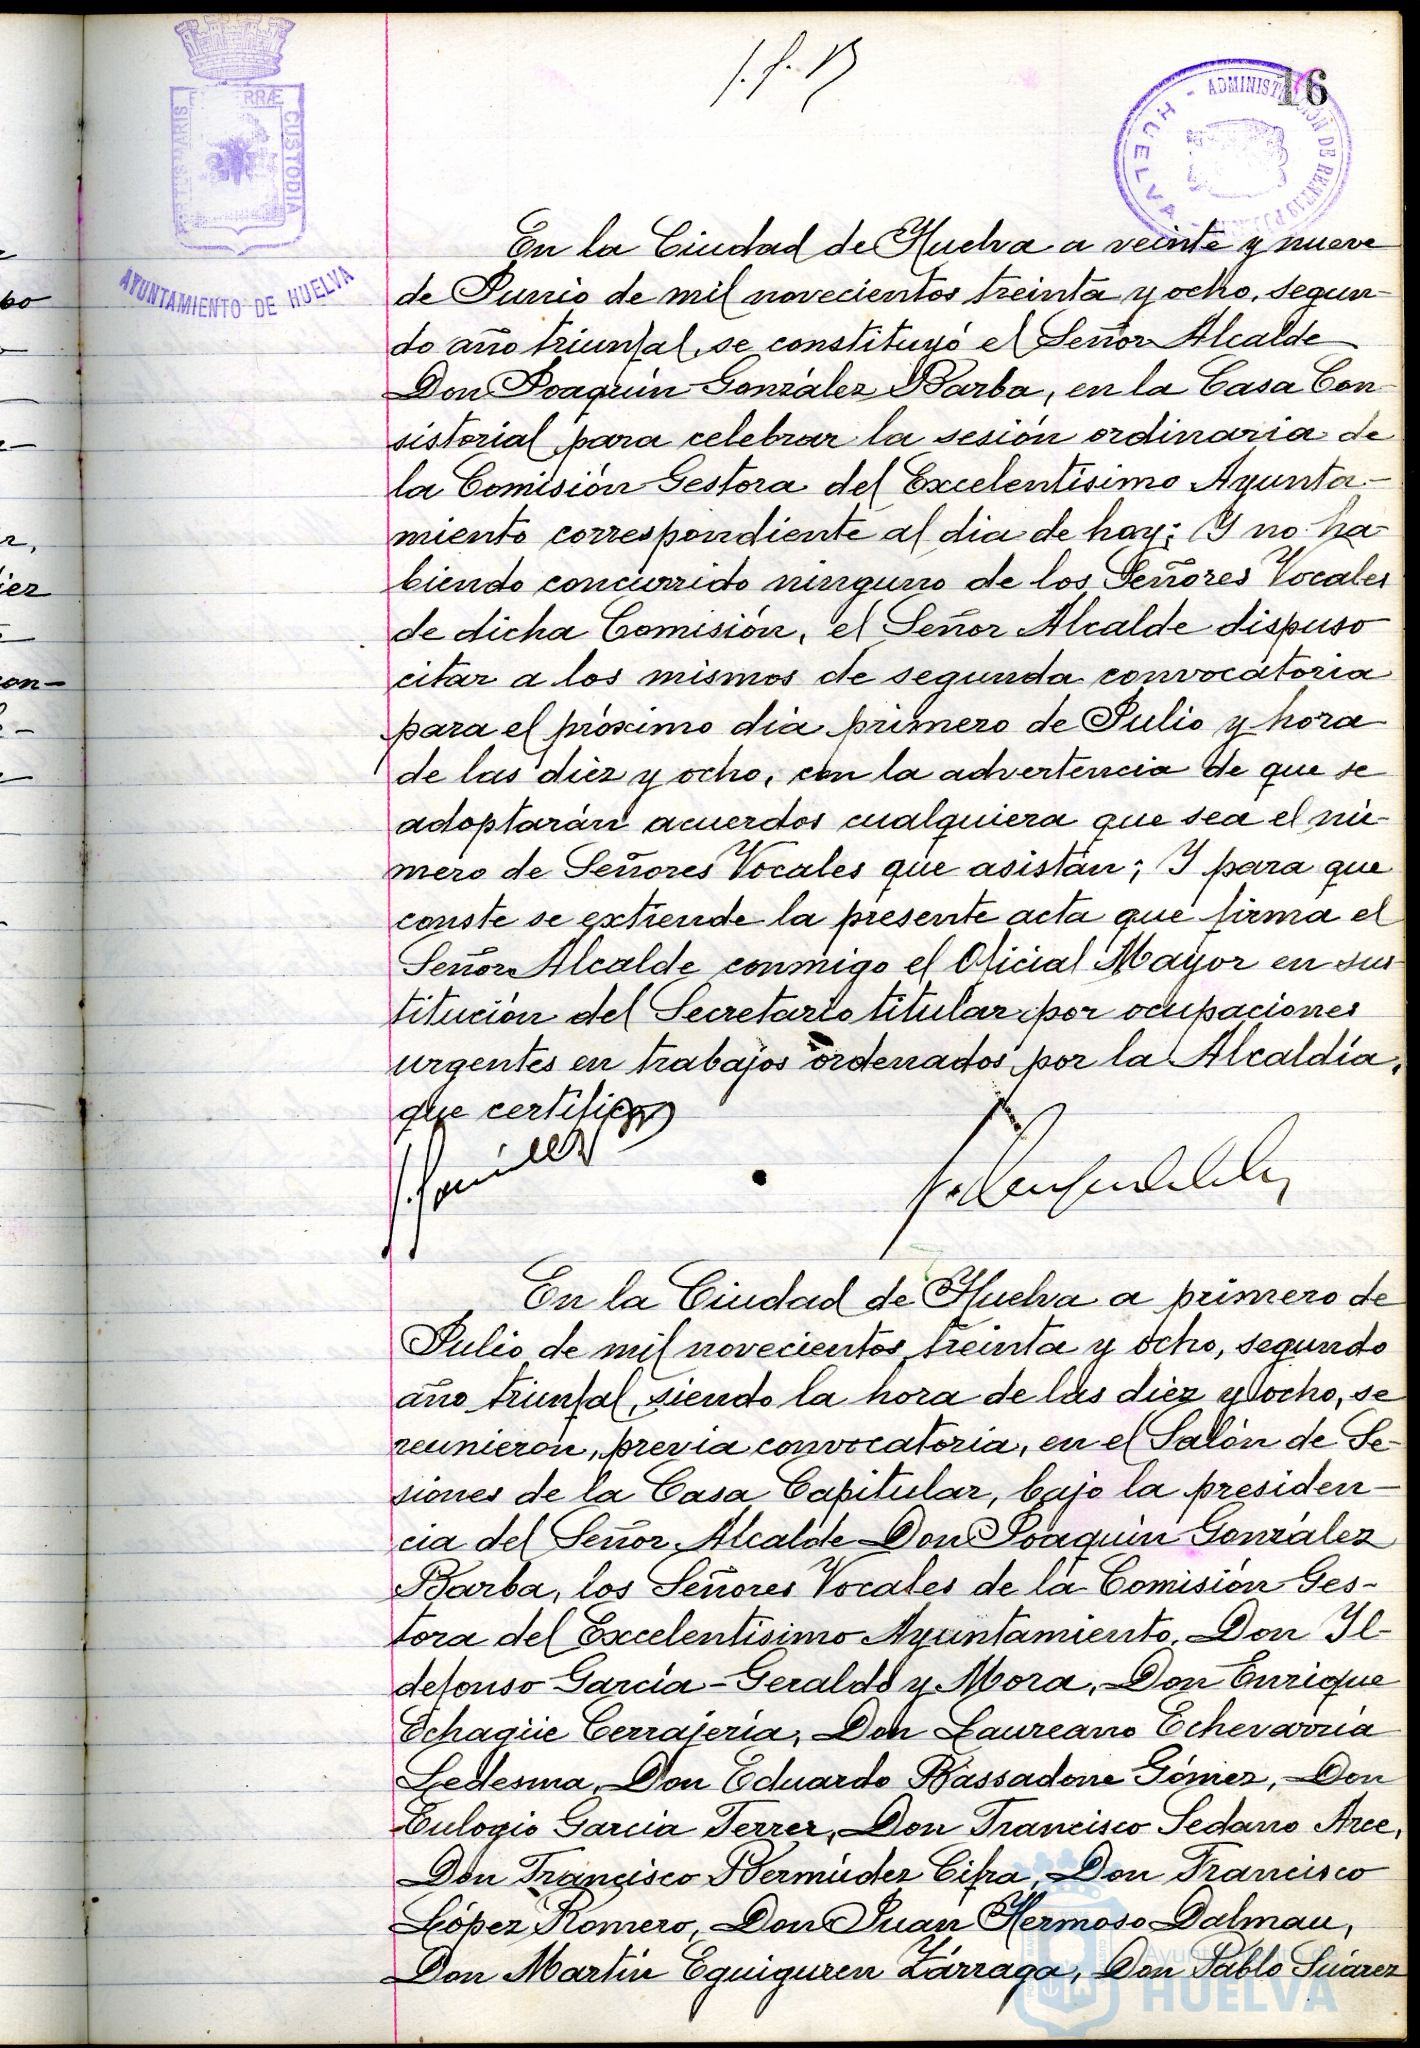 16
PORTUS MARIS ET TERRÆ CUSTODIA
AYUNTAMIENTO DE HUELVA
ADMINISTRACION DE RENTAS PUBLICAS
HUELVA
En la Ciudad de Huelva a veinte y nueve
de Junio de mil novecientos treinta y ocho, segun-
do año triunfal, se constituyó el Señor Alcalde
Don Joaquín González Barba, en la Casa Con
sistorial para celebrar la sesión ordinaria de
la Comisión Gestora del Excelentísimo Ayunta-
miento correspondiente al dia de hoy; Y no ha-
biendo concurrido ninguno de los Señores Vocales
de dicha Comisión, el Señor Alcalde dispuso
citar a los mismos de segunda convocatoria
para el próximo dia primero de Julio y hora
de las diez y ocho, con la advertencia de que se
adoptarán acuerdos cualquiera que sea el nú-
mero de Señores Vocales que asistan; Y para que
conste se extiende la presente acta que firma el
Señor Alcalde conmigo el Oficial Mayor en sus
titución del Secretario titular por ocupaciones
urgentes en trabajos ordenados por la Alcaldía,
que certifico
En la Ciudad de Huelva a primero de
Julio de mil novecientos treinta y ocho, segundo
año triunfal, siendo la hora de las diez y ocho, se
reunieron, previa convocatoria, en el Salón de Se-
siones de la Casa Capitular, bajo la presiden-
cia del Señor Alcalde Don Joaquín González
Barba, los Señores Vocales de la Comisión Ges-
tora del Excelentísimo Ayuntamiento, Don Il-
defonso García-Geraldo y Mora, Don Enrique
Echagüe Cerrajería, Don Laureano Echevarria
Ledesma, Don Eduardo Bassadone Gómez, Don
Eulogio Garcia Ferrer, Don Francisco Sedano Arce,
Don Francisco Bermúdez Cifra, Don Francisco
López Romero, Don Juan Hermoso Dalmau,
Don Martín Eguiguren Zárraga, Don Pablo Súarez
Ayuntamiento de
HUELVA